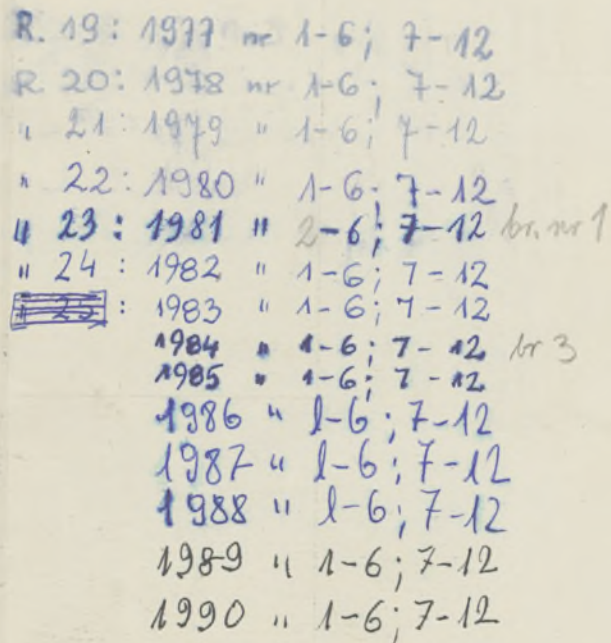 R. 19: 1977 nr 1-6; 7-12
R. 20: 1978 nr 1-6; 7-12
" 21: 1979 " 1-6; 7-12
" 22: 1980 " 1-6; 7-12
" 23: 1981 " 2-6; 7-12 br. nr 1
" 24: 1982 " 1-6; 7-12
" 25: 1983 " 1-6; 7-12
1984 " 1-6; 7-12 br 3
1985 " 1-6; 7-12
1986 " 1-6; 7-12
1987 " 1-6; 7-12
1988 " 1-6; 7-12
1989 " 1-6; 7-12
1990 " 1-6; 7-12